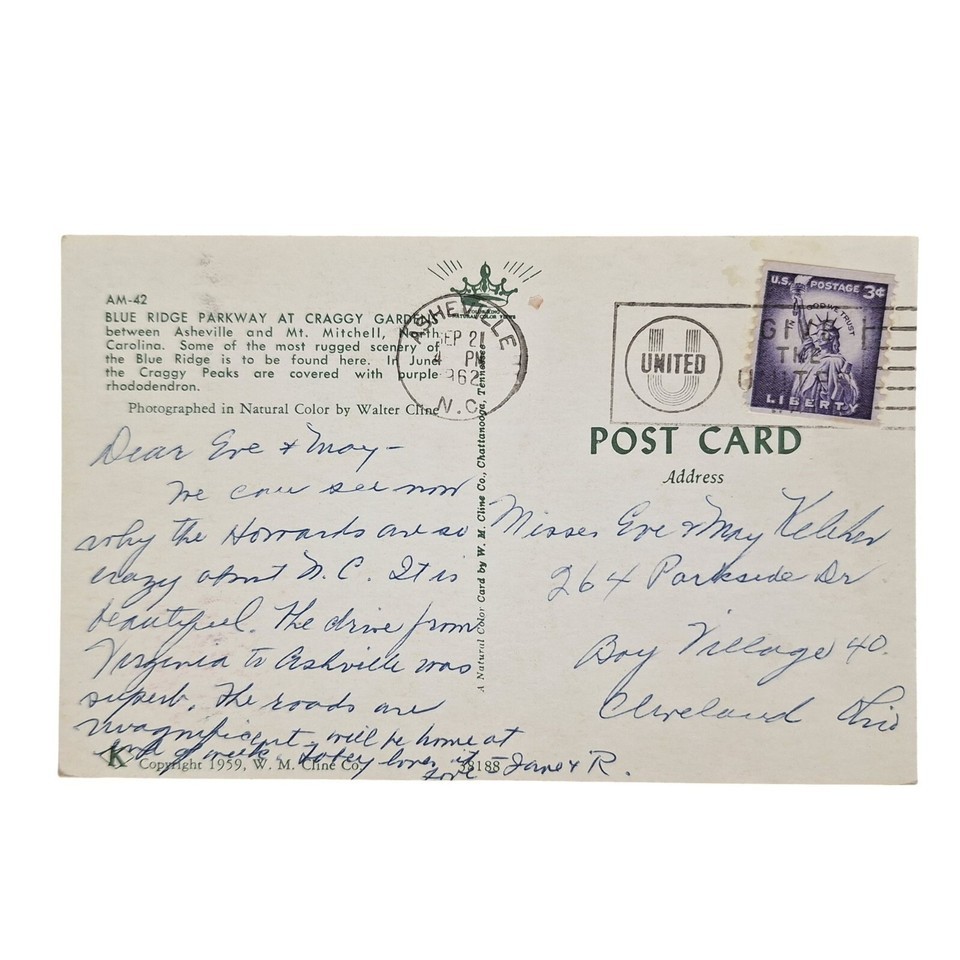 AM-42
BLUE RIDGE PARKWAY AT CRAGGY GARDENS
between Asheville and Mt. Mitchell, North
Carolina. Some of the most rugged scenery of
the Blue Ridge is to be found here. In June
the Craggy Peaks are covered with purple
rhododendron.
Photographed in Natural Color by Walter Cline
Dear Eve & May -
We can see now
why the Howards are so
crazy about N.C. It is
beautiful. The drive from
Virginia to Ashville was
superb. The roads are
magnificent - will be home at
end of week.
love - Jane & R.
K Copyright 1959, W. M. Cline Co.
38188
A Natural Color Card by W. M. Cline Co., Chattanooga, Tennessee
ASHEVILLE
SEP 21
4 PM
1962
N.C.
UNITED
GIVE
THE
UNITED
U.S. POSTAGE 3¢
IN GOD WE TRUST
LIBERTY
POST CARD
Address
Misses Eve & May Keleher
264 Parkside Dr
Bay Village 40.
Cleveland Ohio